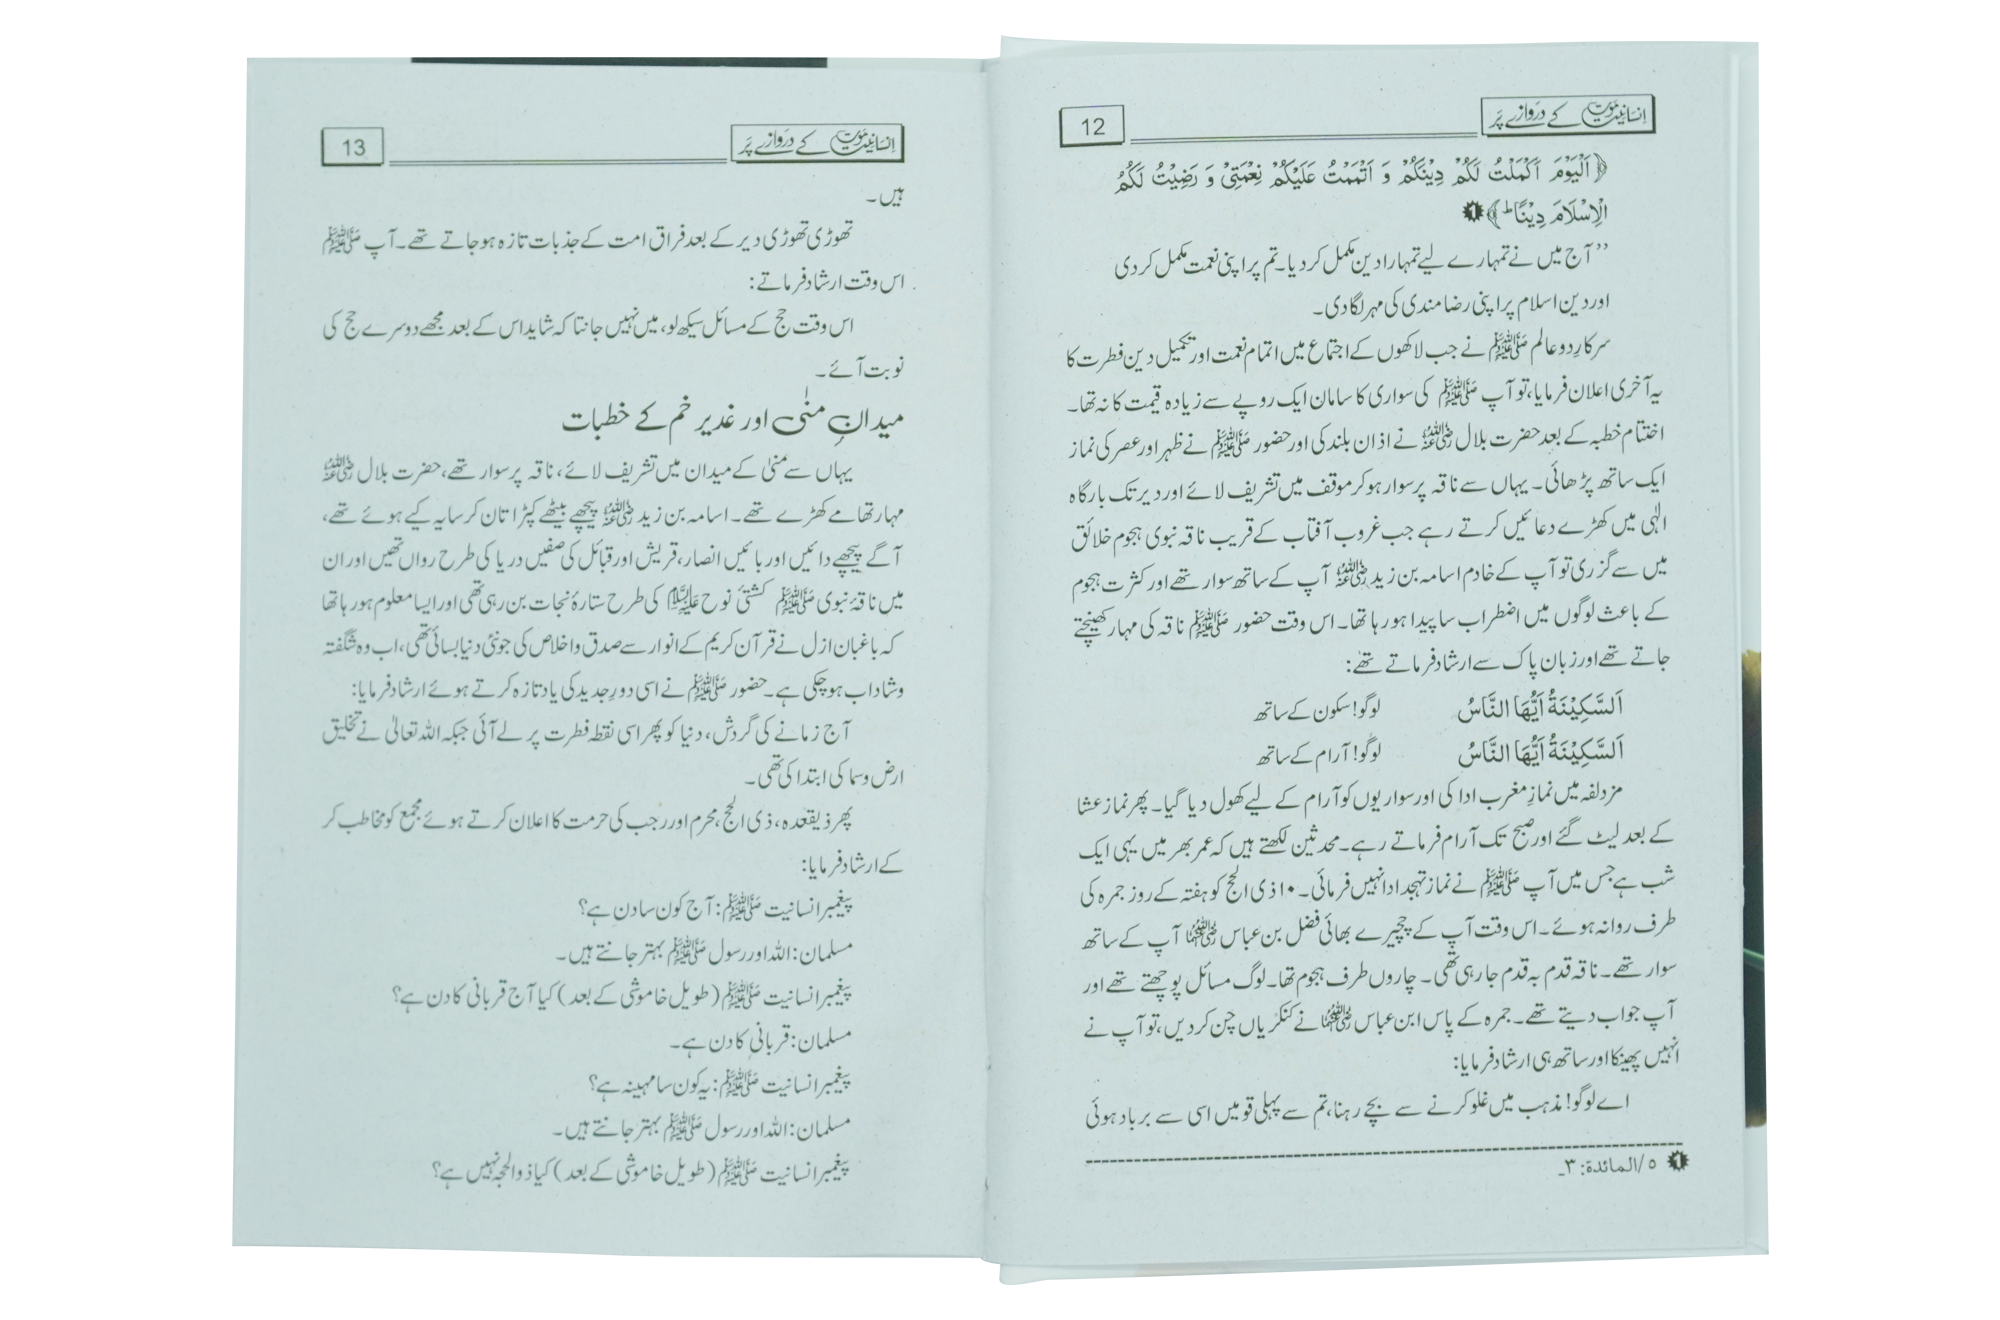 انسانیت موت کے دروازے پر
12
﴿اَلْیَوْمَ اَکْمَلْتُ لَکُمْ دِیْنَکُمْ وَ اَتْمَمْتُ عَلَیْکُمْ نِعْمَتِیْ وَ رَضِیْتُ لَکُمُ
الْاِسْلَامَ دِیْنًا ط﴾ ❶
’’آج میں نے تمہارے لیے تمہارا دین مکمل کر دیا۔ تم پر اپنی نعمت مکمل کر دی
اور دین اسلام پر اپنی رضا مندی کی مہر لگا دی۔
سرکارِ دو عالم ﷺ نے جب لاکھوں کے اجتماع میں اتمام نعمت اور تکمیل دین فطرت کا
یہ آخری اعلان فرمایا، تو آپ ﷺ کی سواری کا سامان ایک روپے سے زیادہ قیمت کا نہ تھا۔
اختتام خطبہ کے بعد حضرت بلال رضی اللہ عنہ نے اذان بلند کی اور حضور ﷺ نے ظہر اور عصر کی نماز
ایک ساتھ پڑھائی۔ یہاں سے ناقہ پر سوار ہو کر موقف میں تشریف لائے اور دیر تک بارگاہ
الٰہی میں کھڑے دعائیں کرتے رہے جب غروب آفتاب کے قریب ناقہ نبوی ہجوم خلائق
میں سے گزری تو آپ کے خادم اسامہ بن زید رضی اللہ عنہ آپ کے ساتھ سوار تھے اور کثرت ہجوم
کے باعث لوگوں میں اضطراب سا پیدا ہو رہا تھا۔ اس وقت حضور ﷺ ناقہ کی مہار کھینچتے
جاتے تھے اور زبان پاک سے ارشاد فرماتے تھے:
اَلسَّکِیْنَةُ اَیُّهَا النَّاسُ لوگو! سکون کے ساتھ
اَلسَّکِیْنَةُ اَیُّهَا النَّاسُ لوگو! آرام کے ساتھ
مزدلفہ میں نمازِ مغرب ادا کی اور سواریوں کو آرام کے لیے کھول دیا گیا۔ پھر نماز عشا
کے بعد لیٹ گئے اور صبح تک آرام فرماتے رہے۔ محدثین لکھتے ہیں کہ عمر بھر میں یہی ایک
شب ہے جس میں آپ ﷺ نے نماز تہجد ادا نہیں فرمائی۔ ۱۰ ذی الحج کو ہفتہ کے روز جمرہ کی
طرف روانہ ہوئے۔ اس وقت آپ کے چچیرے بھائی فضل بن عباس رضی اللہ عنہما آپ کے ساتھ
سوار تھے۔ ناقہ قدم بہ قدم جا رہی تھی۔ چاروں طرف ہجوم تھا۔ لوگ مسائل پوچھتے تھے اور
آپ جواب دیتے تھے۔ جمرہ کے پاس ابن عباس رضی اللہ عنہما نے کنکریاں چن کر دیں، تو آپ نے
انہیں پھینکا اور ساتھ ہی ارشاد فرمایا:
اے لوگو! مذہب میں غلو کرنے سے بچے رہنا، تم سے پہلی قومیں اسی سے برباد ہوئی
❶ ۵/المائدة: ۳۔
انسانیت موت کے دروازے پر
13
ہیں۔
تھوڑی تھوڑی دیر کے بعد فراق امت کے جذبات تازہ ہو جاتے تھے۔ آپ ﷺ
اس وقت ارشاد فرماتے:
اس وقت حج کے مسائل سیکھ لو، میں نہیں جانتا کہ شاید اس کے بعد مجھے دوسرے حج کی
نوبت آئے۔
میدانِ منٰی اور غدیر خم کے خطبات
یہاں سے منیٰ کے میدان میں تشریف لائے، ناقہ پر سوار تھے، حضرت بلال رضی اللہ عنہ
مہار تھامے کھڑے تھے۔ اسامہ بن زید رضی اللہ عنہ پیچھے بیٹھے کپڑا تان کر سایہ کیے ہوئے تھے،
آگے پیچھے دائیں اور بائیں انصار، قریش اور قبائل کی صفیں دریا کی طرح رواں تھیں اور ان
میں ناقۂ نبوی ﷺ کشتیٔ نوح علیہ السلام کی طرح ستارۂ نجات بن رہی تھی اور ایسا معلوم ہو رہا تھا
کہ باغبان ازل نے قرآن کریم کے انوار سے صدق و اخلاص کی جو نئی دنیا بسائی تھی، اب وہ شگفتہ
و شاداب ہو چکی ہے۔ حضور ﷺ نے اسی دورِ جدید کی یاد تازہ کرتے ہوئے ارشاد فرمایا:
آج زمانے کی گردش، دنیا کو پھر اسی نقطہ فطرت پر لے آئی جبکہ اللہ تعالیٰ نے تخلیق
ارض و سما کی ابتدا کی تھی۔
پھر ذیقعدہ، ذی الحج، محرم اور رجب کی حرمت کا اعلان کرتے ہوئے مجمع کو مخاطب کر
کے ارشاد فرمایا:
پیغمبر انسانیت ﷺ: آج کون سا دن ہے؟
مسلمان: اللہ اور رسول ﷺ بہتر جانتے ہیں۔
پیغمبر انسانیت ﷺ (طویل خاموشی کے بعد) کیا آج قربانی کا دن ہے؟
مسلمان: قربانی کا دن ہے۔
پیغمبر انسانیت ﷺ: یہ کون سا مہینہ ہے؟
مسلمان: اللہ اور رسول ﷺ بہتر جانتے ہیں۔
پیغمبر انسانیت ﷺ (طویل خاموشی کے بعد) کیا ذوالحجہ نہیں ہے؟